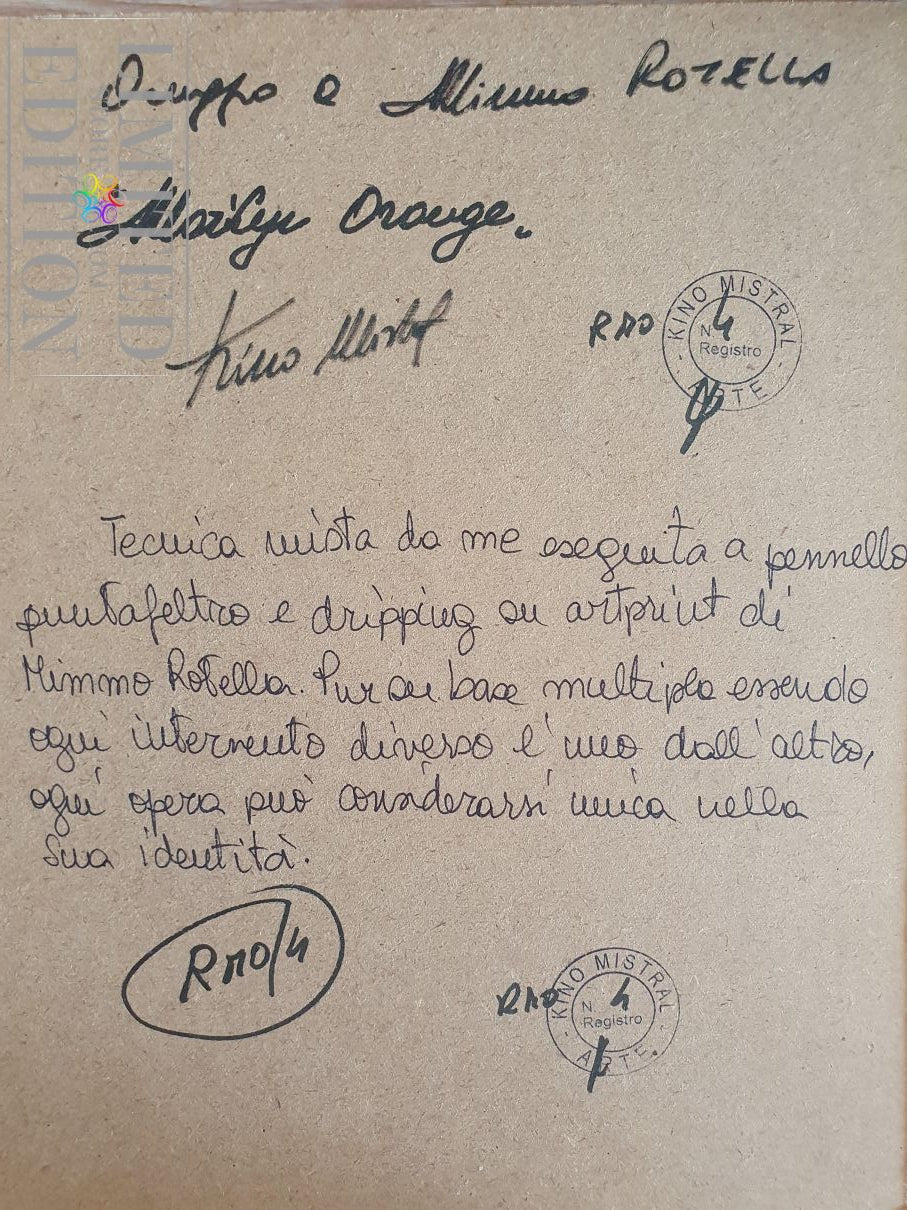 Omaggio a Mimmo ROTELLA
Marilyn Orange.
Kino Mistral
RMO
KINO MISTRAL
N. 4
Registro
ARTE
Tecnica mista da me eseguita a pennello
puntafeltro e dripping su artprint di
Mimmo Rotella. Pur su base multipla essendo
ogni intervento diverso l'uno dall'altro,
ogni opera può considerarsi unica nella
sua identità.
RMO/4
RMO
KINO MISTRAL
N. 4
Registro
ARTE
LIMITED
EDITION